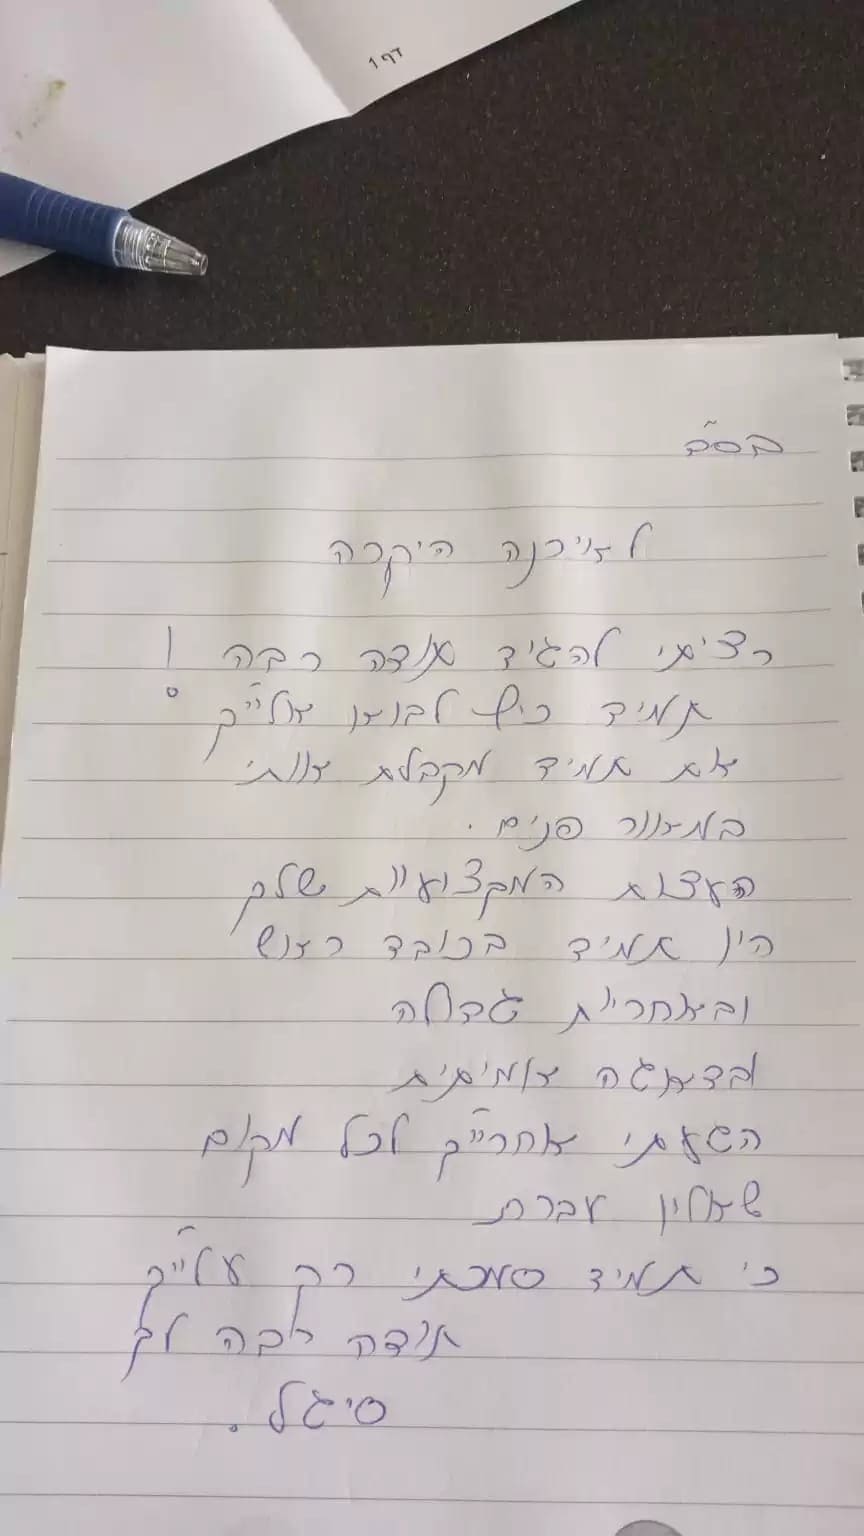 דף 1
בס"ד
לאירנה היקרה
רציתי להגיד תודה רבה !
תמיד כיף לבוא אלייך
את תמיד מקבלת אותי
במאור פנים.
העצות המקצועיות שלך
הין תמיד בכובד ראש
ובאחריות גדולה
ובדאגה אמיתית
הגעתי אחרייך לכל מקום
שאליו עברת
כי תמיד סמכתי רק עלייך
תודה רבה לך
סיגל.